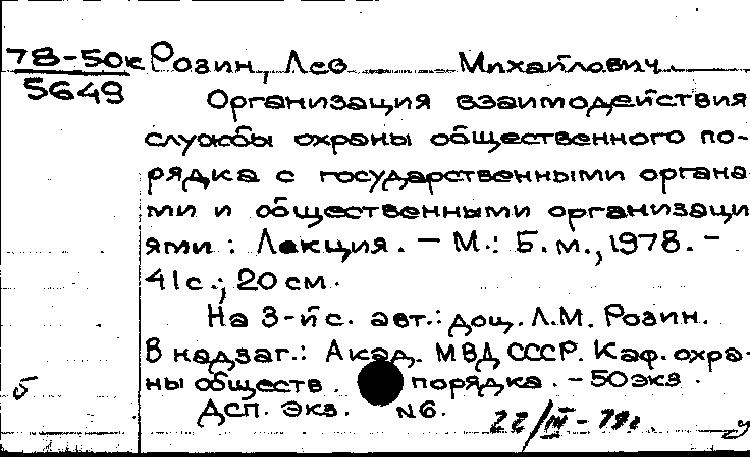 78-50к Розин, Лев Михайлович.
5649
Организация взаимодействия
службы охраны общественного по-
рядка с государственными органа
ми и общественными организаци
ями: Лекция. – М.: Б.м., 1978. –
41с.; 20см.
На 3-й с. авт.: доц. Л.М. Розин.
В надзаг.: Акад. МВД СССР. Каф. охра-
ны обществ. порядка. – 50экз.
Дсп. Экз. N6.
22/III-79г.
б
у